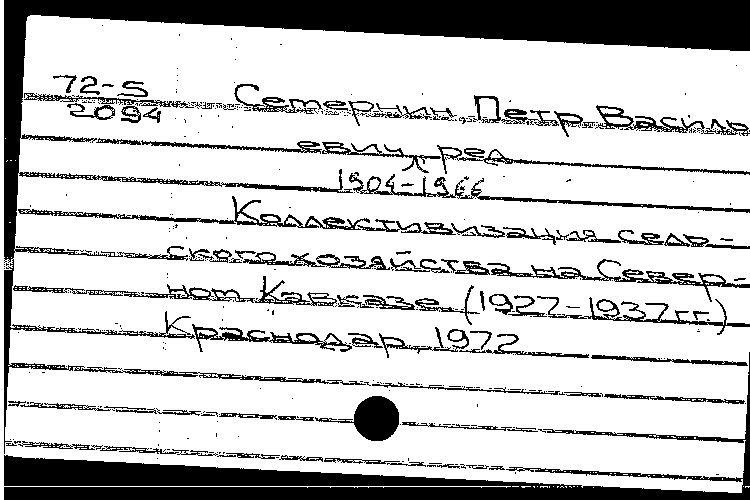 72-S
2094
Сетернин, Петр Василь
евич, ред
1904-1966
Коллективизация сель-
ского хозяйства на Север-
ном Кавказе (1927-1937гг.)
Краснодар, 1972